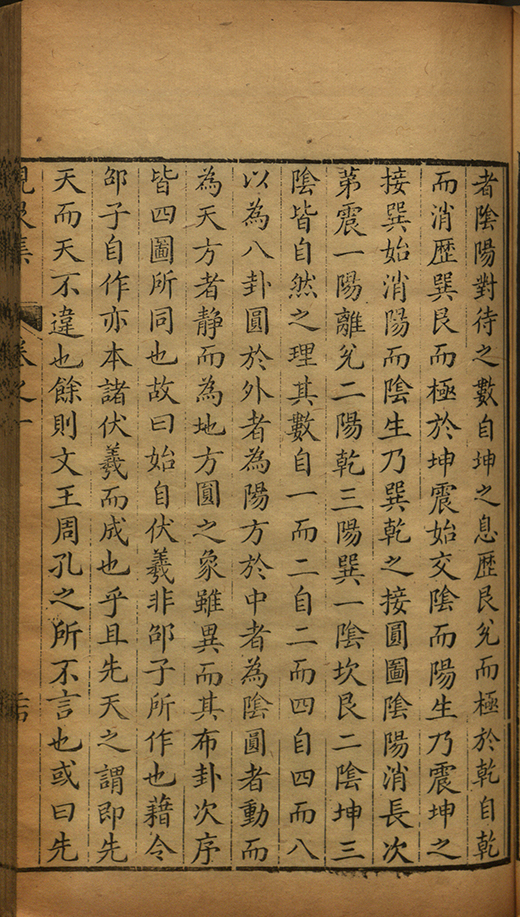 者陰陽對待之數自坤之息歷艮兌而極於乾自乾
而消歷巽艮而極於坤震始交陰而陽生乃震坤之
接巽始消陽而陰生乃巽乾之接圓圖陰陽消長次
第震一陽離兌二陽乾三陽巽一陰坎艮二陰坤三
陰皆自然之理其數自一而二自二而四自四而八
以為八卦圓於外者為陽方於中者為陰圓者動而
為天方者静而為地方圓之象雖異而其布卦次序
皆四圖所同也故曰始自伏羲非邵子所作也藉令
邵子自作亦本諸伏羲而成也乎且先天之謂即先
天而天不違也餘則文王周孔之所不言也或曰先
集 卷之